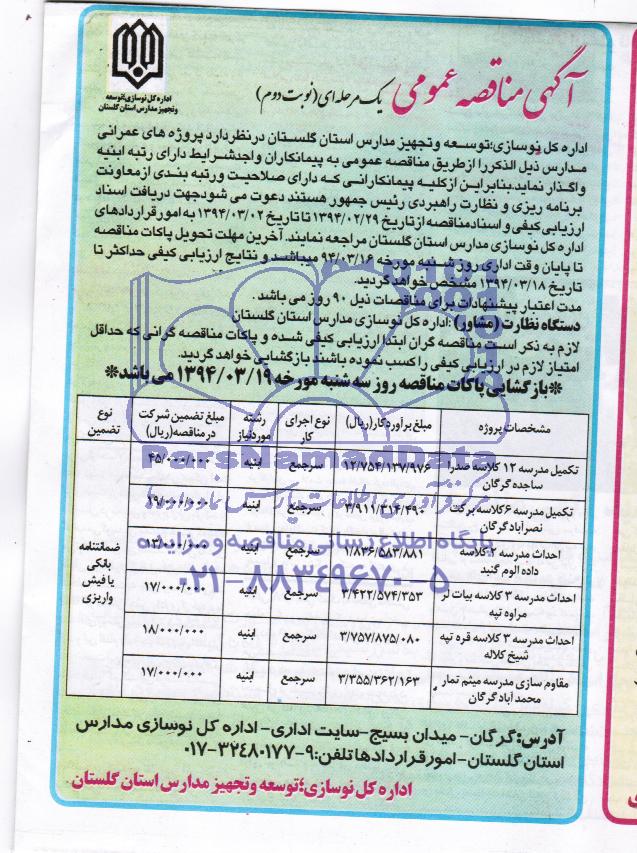 آگهی مناقصه عمومی یک مرحله ای (نوبت دوم)
اداره کل نوسازی؛توسعه
وتجهیز مدارس استان گلستان
اداره کل نوسازی؛توسعه وتجهیز مدارس استان گلستان درنظردارد پروژه های عمرانی
مدارس ذیل الذکررا ازطریق مناقصه عمومی به پیمانکاران واجدشرایط دارای رتبه ابنیه
واگذار نماید.بنابراین ازکلیه پیمانکارانی که دارای صلاحیت ورتبه بندی ازمعاونت
برنامه ریزی و نظارت راهبردی رئیس جمهور هستند دعوت می شودجهت دریافت اسناد
ارزیابی کیفی و اسنادمناقصه ازتاریخ ۱۳۹۴/۰۲/۲۹ تا تاریخ ۱۳۹۴/۰۳/۰۲ به امورقراردادهای
اداره کل نوسازی مدارس استان گلستان مراجعه نمایند. آخرین مهلت تحویل پاکات مناقصه
تا پایان وقت اداری روز شنبه مورخه ۹۴/۰۳/۱۶ میباشد و نتایج ارزیابی کیفی حداکثر تا
تاریخ ۱۳۹۴/۰۳/۱۸ مشخص خواهد گردید.
مدت اعتبار پیشنهادات برای مناقصات ذیل ۹۰ روز می باشد.
دستگاه نظارت (مشاور) :اداره کل نوسازی مدارس استان گلستان
لازم به ذکر است مناقصه گران ابتدا ارزیابی کیفی شده و پاکات مناقصه گرانی که حداقل
امتیاز لازم در ارزیابی کیفی را کسب نموده باشند بازگشایی خواهد گردید.
*بازگشایی پاکات مناقصه روز سه شنبه مورخه ۱۳۹۴/۰۳/۱۹ می باشد*
مشخصات پروژه مبلغ برآوردکار(ریال) نوع اجرای کار رشته موردنیاز مبلغ تضمین شرکت درمناقصه(ریال) نوع تضمین
تکمیل مدرسه ۱۲ کلاسه صدرا ساجده گرگان ۱۲/۷۵۴/۱۳۷/۹۷۶ سرجمع ابنیه ۴۵/۰۰۰/۰۰۰
تکمیل مدرسه ۶ کلاسه برکت نصرآباد گرگان ۳/۹۱۱/۳۱۴/۴۹۰ ۱۹/۰۰۰/۰۰۰
احداث مدرسه ۲ کلاسه داده الوم گنبد ۱/۸۳۶/۵۸۳/۸۸۱ سرجمع ابنیه ۱۳/۰۰۰/۰۰۰
احداث مدرسه ۳ کلاسه بیات لر مراوه تپه ۳/۴۲۲/۵۷۴/۳۵۳ سرجمع ابنیه ۱۷/۰۰۰/۰۰۰
احداث مدرسه ۳ کلاسه قره تپه شیخ کلاله ۳/۷۵۷/۸۷۵/۰۸۰ سرجمع ابنیه ۱۸/۰۰۰/۰۰۰
مقاوم سازی مدرسه میثم تمار محمدآباد گرگان ۳/۳۵۵/۳۶۲/۱۶۳ سرجمع ابنیه ۱۷/۰۰۰/۰۰۰
ضمانتنامه بانکی یا فیش واریزی
ParsNamadData
مرکز فرآوری اطلاعات پارس نماد داده ها
پایگاه اطلاع رسانی مناقصه و مزایده
۰۲۱-۸۸۳۴۹۶۷۰-۵
آدرس:گرگان- میدان بسیج-سایت اداری- اداره کل نوسازی مدارس
استان گلستان-امورقراردادهاتلفن:۹-۳۲۴۸۰۱۷۷-۰۱۷
اداره کل نوسازی؛توسعه وتجهیز مدارس استان گلستان